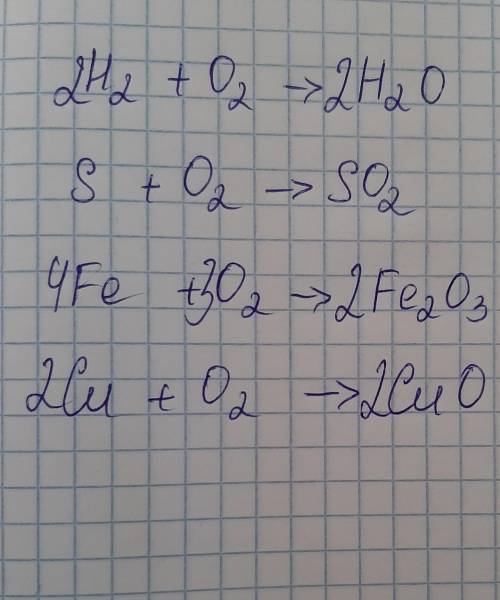 2H₂ + O₂ → 2H₂O
S + O₂ → SO₂
4Fe + 3O₂ → 2Fe₂O₃
2Cu + O₂ → 2CuO